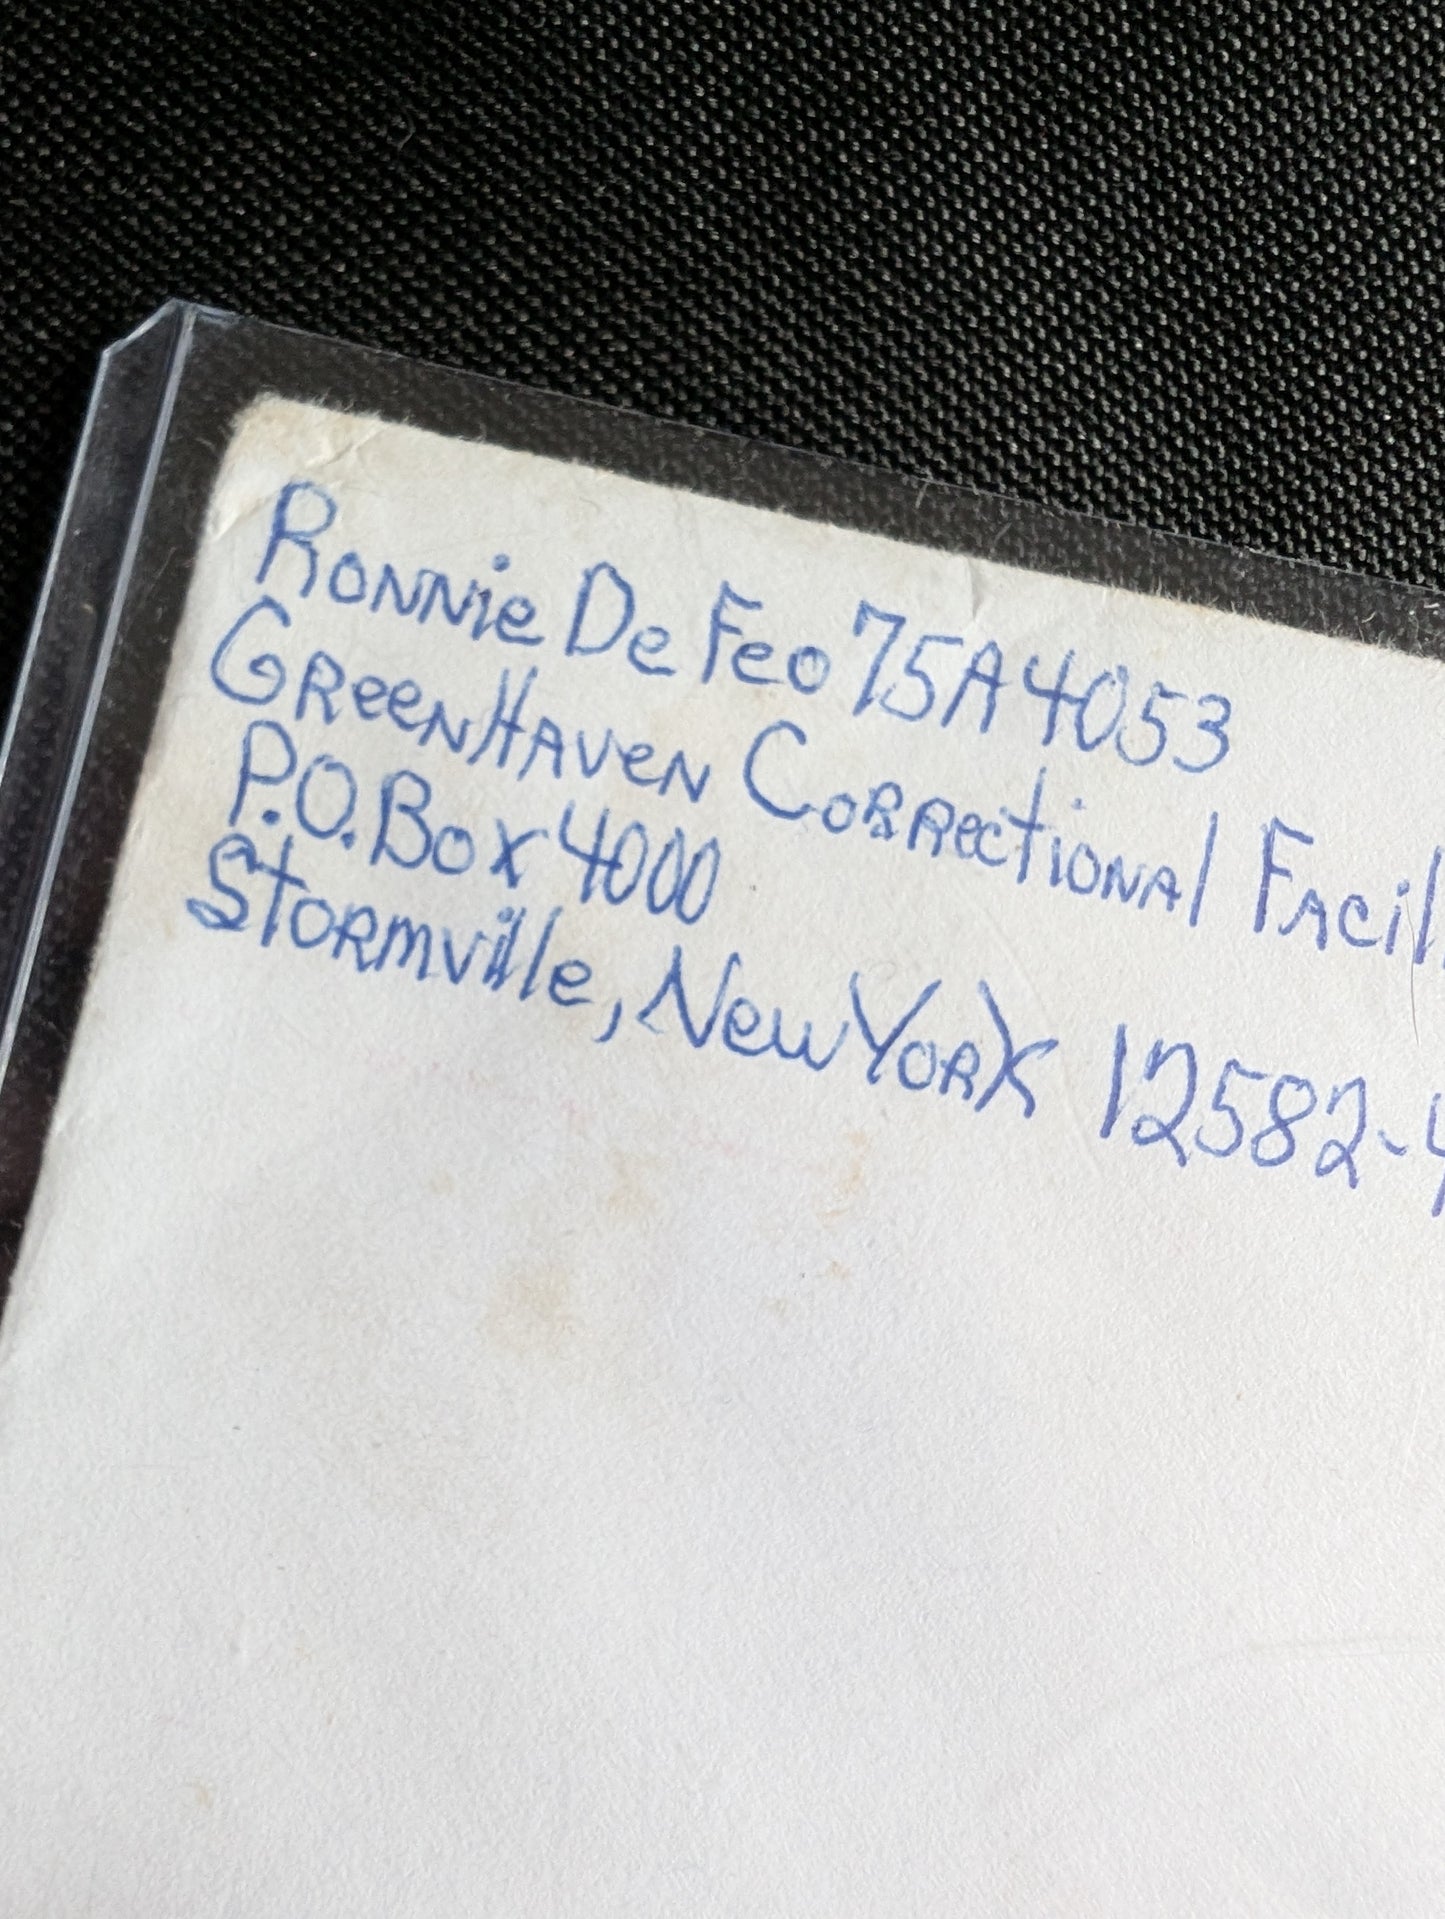 Ronnie DeFeo 75A4053
GreenHaven Correctional Facil
P.O. Box 4000
Stormville, New York 12582-4